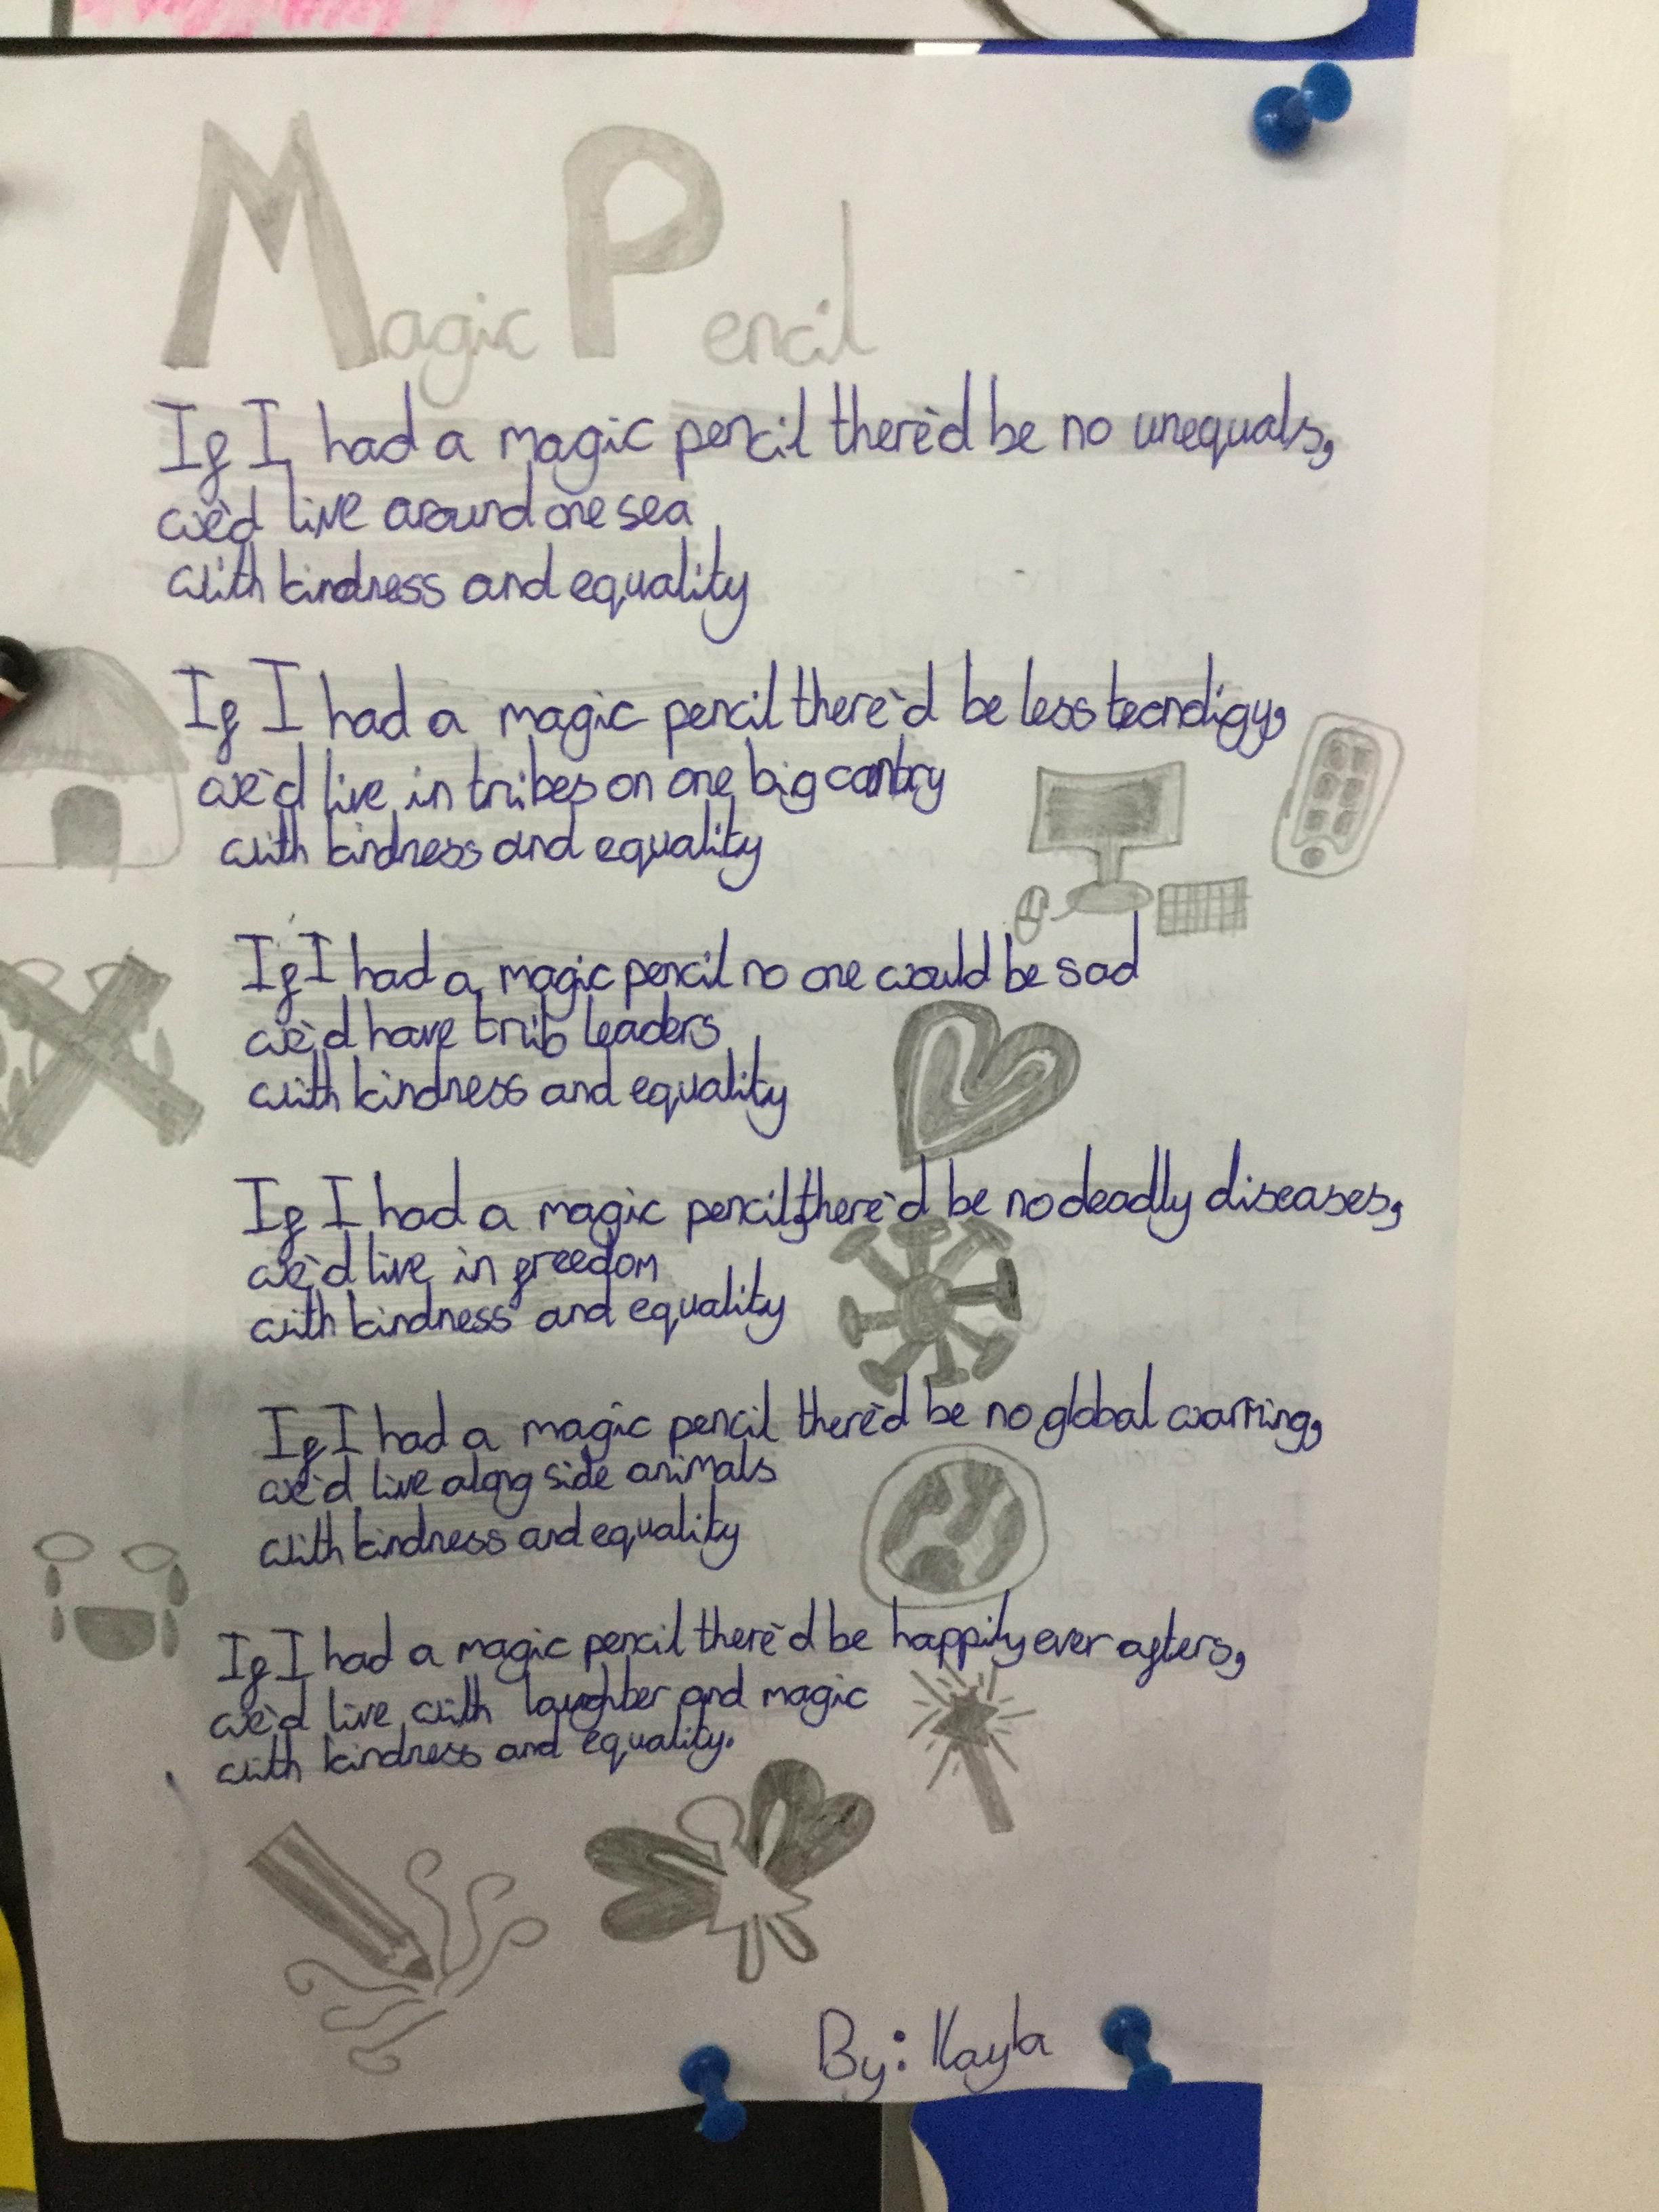 Magic Pencil
If I had a magic pencil there'd be no unequals,
we'd live around one sea
with kindness and equality
If I had a magic pencil there'd be less tecnoligy,
we'd live in tribes on one big contry
with kindness and equality
If I had a magic pencil no one would be sad
we'd have trib leaders
with kindness and equality
If I had a magic pencil, there'd be no deadly diseases,
we'd live in freedom
with kindness and equality
If I had a magic pencil there'd be no global warming,
we'd live along side animals
with kindness and equality
If I had a magic pencil there'd be happily ever afters,
we'd live with laughter and magic
with kindness and equality.
By: Kayla